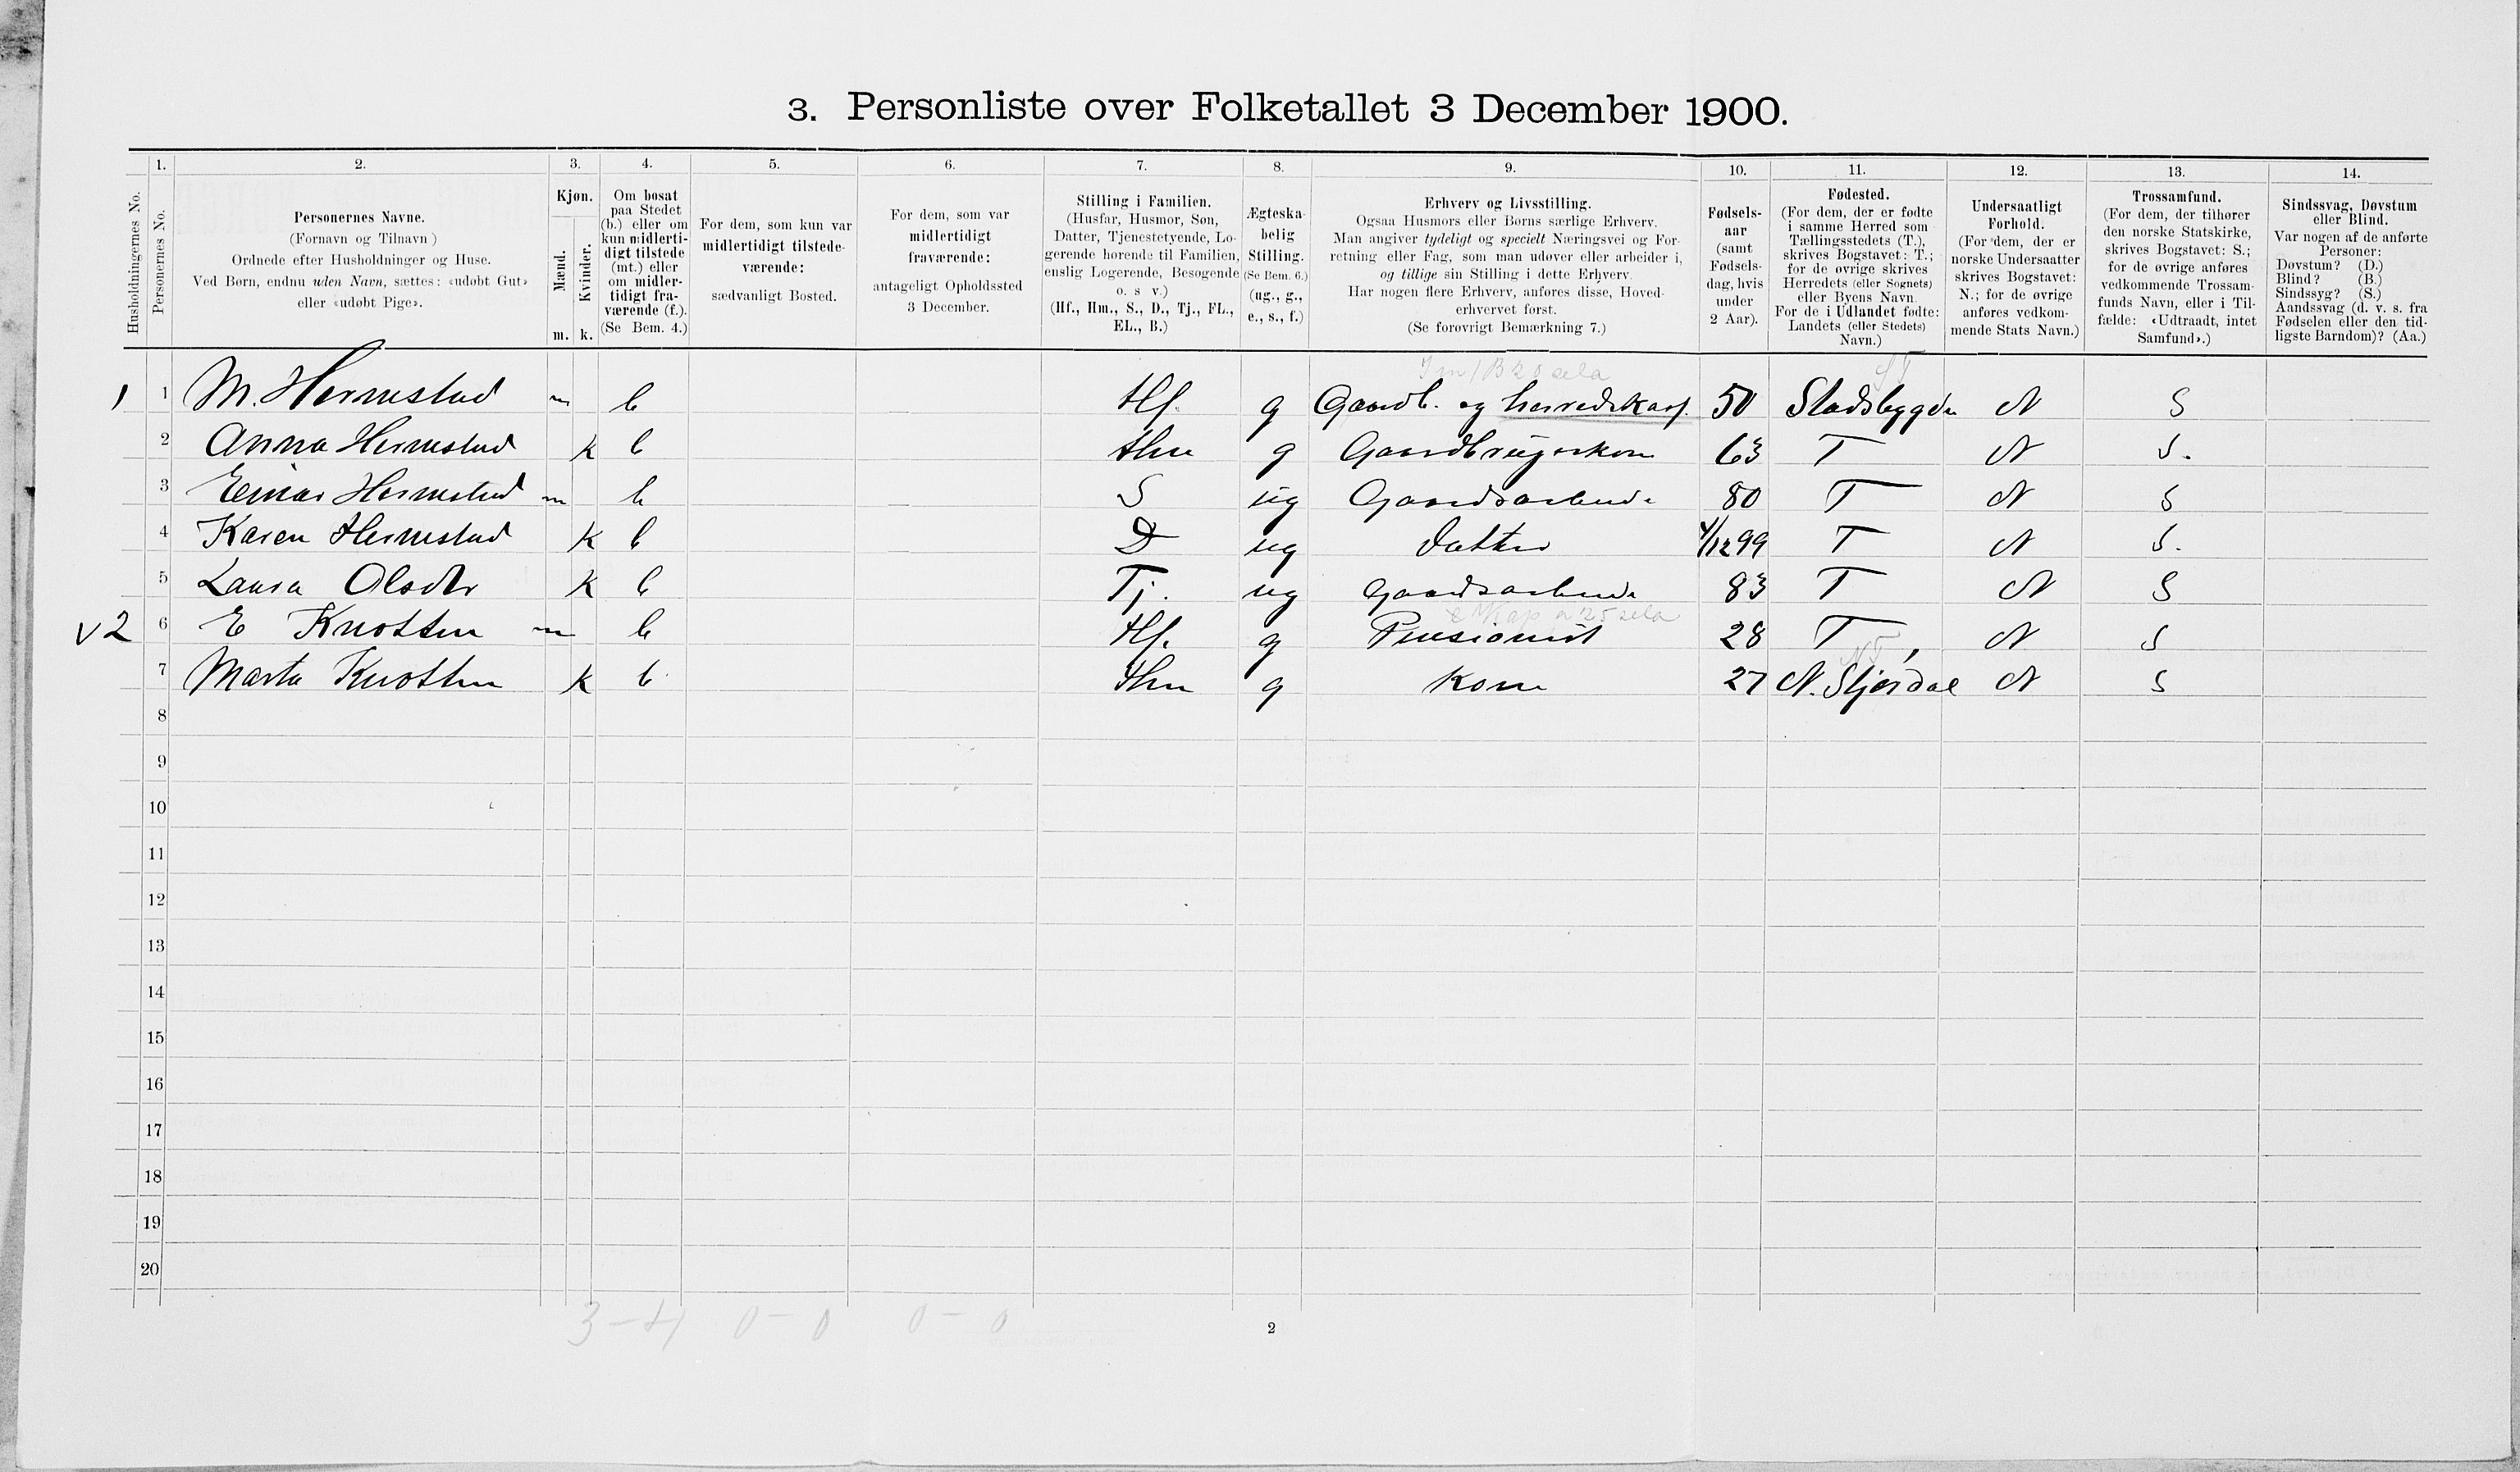 3. Personliste over Folketallet 3 December 1900.
1. 2. 3. 4. 5. 6. 7. 8. 9. 10. 11. 12. 13. 14.
Husholdningernes No.
Personernes No.
Personernes Navne.
(Fornavn og Tilnavn )
Ordnede efter Husholdninger og Huse.
Ved Børn, endnu uden Navn, sættes: «udøbt Gut»
eller «udøbt Pige».
Kjøn.
Mænd.
Kvinder.
m. k.
Om bosat
paa Stedet
(b.) eller om
kun midlerti-
digt tilstede
(mt.) eller
om midler-
tidigt fra-
værende (f.).
(Se Bem. 4.)
For dem, som kun var
midlertidigt tilstede-
værende:
sædvanligt Bosted.
For dem, som var
midlertidigt
fraværende:
antageligt Opholdssted
3 December.
Stilling i Familien.
(Husfar, Husmor, Søn,
Datter, Tjenestetyende, Lo-
gerende hørende til Familien,
enslig Logerende, Besøgende
o. s v.)
(Hf., Hm., S., D., Tj., FL.,
EL., B.)
Ægteska-
belig
Stilling.
(Se Bem. 6.)
(ug., g.,
e., s., f.)
Erhverv og Livsstilling.
Ogsaa Husmors eller Børns særlige Erhverv.
Man angiver tydeligt og specielt Næringsvei og For-
retning eller Fag, som man udøver eller arbeider i,
og tillige sin Stilling i dette Erhverv.
Har nogen flere Erhverv, anføres disse, Hoved-
erhvervet først.
(Se forøvrigt Bemærkning 7.)
Fødsels-
aar
(samt
Fødsels-
dag, hvis
under
2 Aar).
Fødested.
(For dem, der er fødte
i samme Herred som
Tællingsstedets (T.),
skrives Bogstavet: T.;
for de øvrige skrives
Herredets (eller Sognets)
eller Byens Navn.
For de i Udlandet fødte:
Landets (eller Stedets)
Navn.)
Undersaatligt
Forhold.
(For dem, der er
norske Undersaatter
skrives Bogstavet:
N.; for de øvrige
anføres vedkom-
mende Stats Navn.)
Trossamfund.
(For dem, der tilhører
den norske Statskirke,
skrives Bogstavet: S.;
for de øvrige anføres
vedkommende Trossam-
funds Navn, eller i Til-
fælde: «Udtraadt, intet
Samfund».)
Sindssvag, Døvstum
eller Blind.
Var nogen af de anførte
Personer:
Døvstum? (D.)
Blind? (B.)
Sindssyg? (S.)
Aandssvag (d. v. s. fra
Fødselen eller den tid-
ligste Barndom)? (Aa.)
ST
1 1 M. Hermstad m b Hf. g Gaardb. og herredskass. 50 Stadsbygden N S
2 Anna Hermstad k b Hm g Gaardbrugerkone 63 T N S.
3 Einar Hermstad m b S ug Gaardsarbeide 80 T N S
4 Karen Hermstad k b D ug Datter 4/12 99 T N S.
5 Laura Olsdtr k b Tj. ug Gaardsarbeide 83 T N S
v 2 6 E Knotten m b Hf. g Pensionist 28 T N S
NT
7 Marta Knotten k b Hm g Kone 27 N. Stjørdal N S
8
9
10
11
12
13
14
15
16
17
18
19
20
3-4 0-0 0-0
2